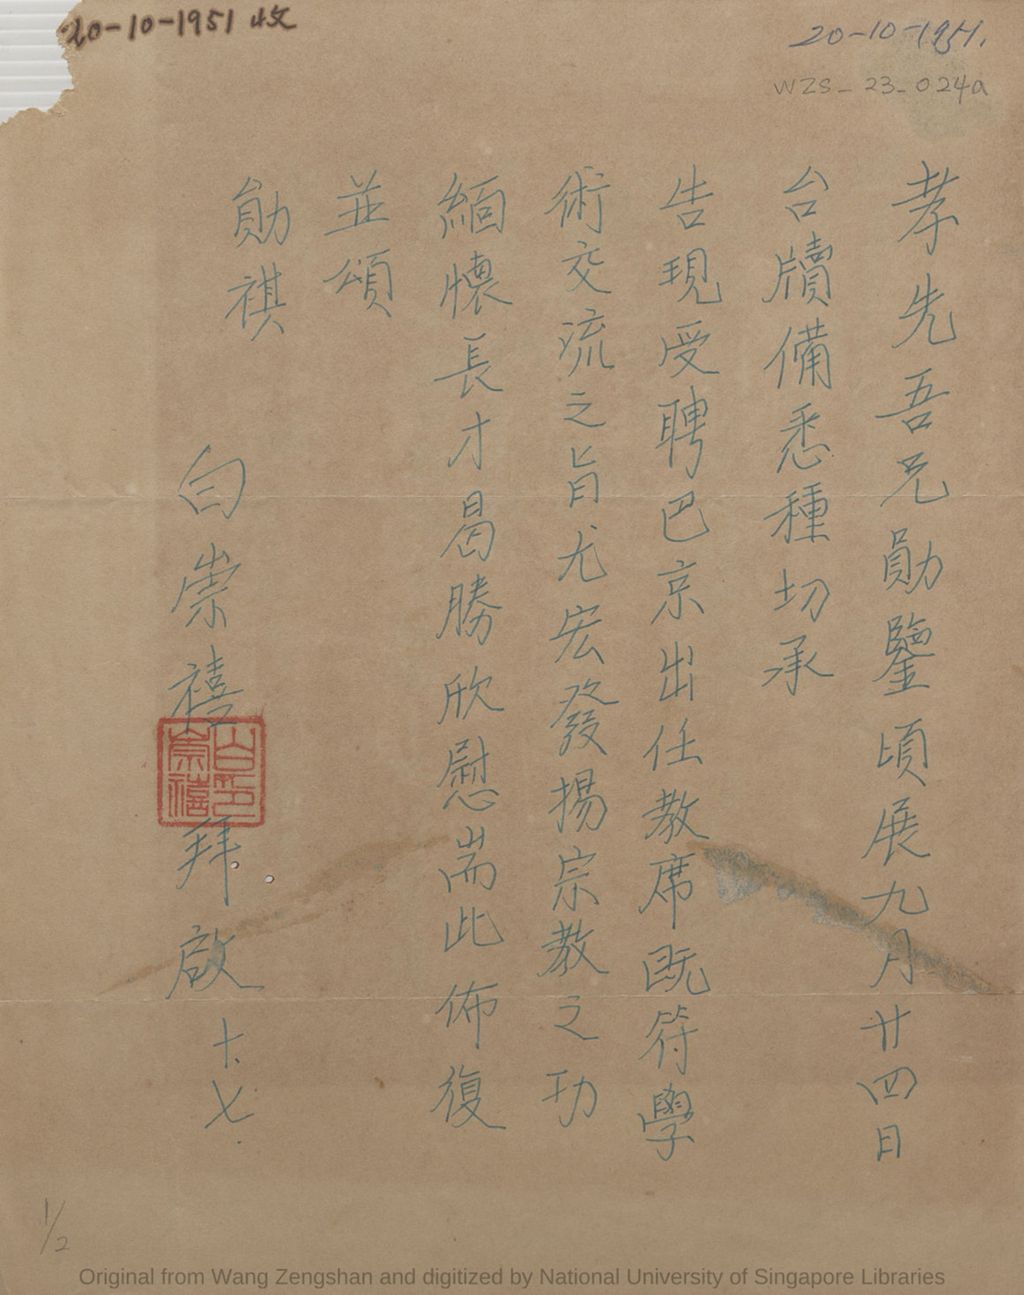 20-10-1951 收
20-10-1951.
WZS_23_024a
孝先吾兄勛鑒頃展九月廿四日
台牘備悉種切承
告現受聘巴京出任教席既符學
術交流之旨尤宏發揚宗教之功
緬懷長才曷勝欣慰耑此佈復
並頌
勛祺
白崇禧拜啟 十.七.
白崇禧印
1/2
Original from Wang Zengshan and digitized by National University of Singapore Libraries